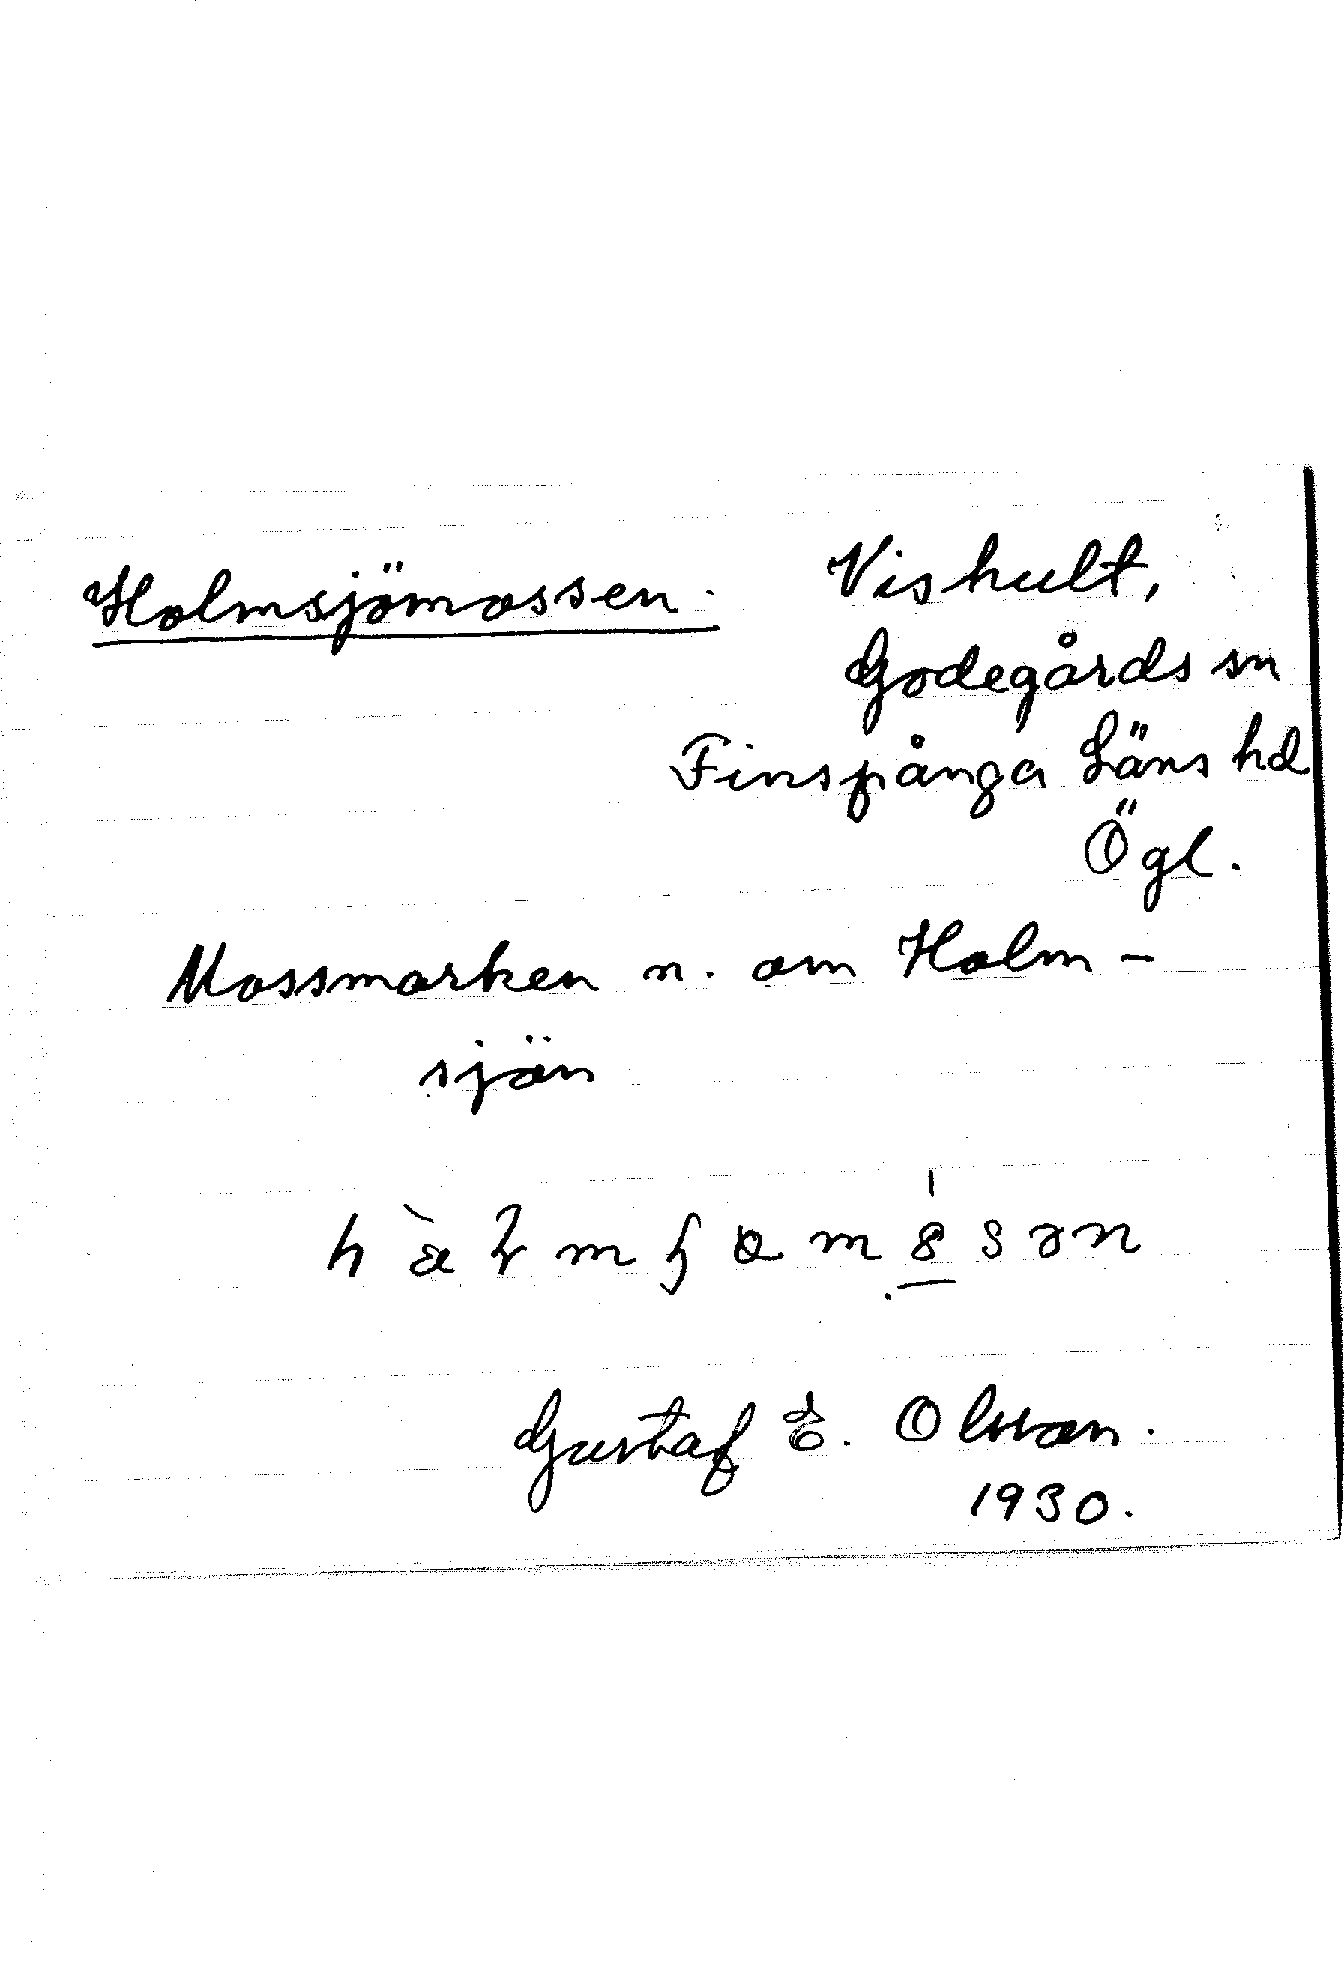 Holmsjömossen. Vishult,
Godegårds sn
Finspånga Läns hd
Ögl.
Mossmarken n. om Holm-
sjön
Gustaf E. Olsson.
1930.